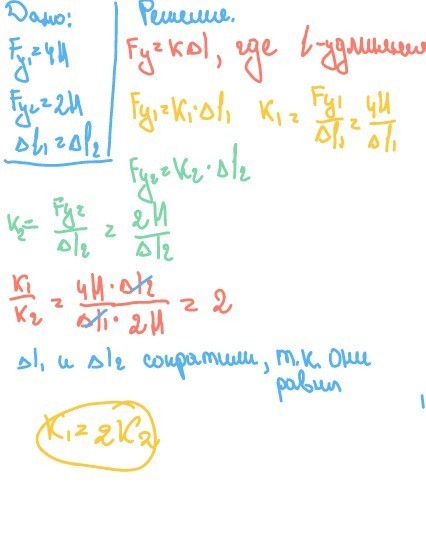 Дано:
Fу₁=4Н
Fу₂=2Н
Δl₁=Δl₂
Решение.
Fу=КΔl, где l-удлинение
Fу₁=К₁·Δl₁ К₁=Fу₁/Δl₁=4Н/Δl₁
Fу₂=К₂·Δl₂
К₂=Fу₂/Δl₂=2Н/Δl₂
К₁/К₂=4Н·Δl₂/Δl₁·2Н=2
Δl₁ и Δl₂ сократили, т.к. они
равны
К₁=2К₂